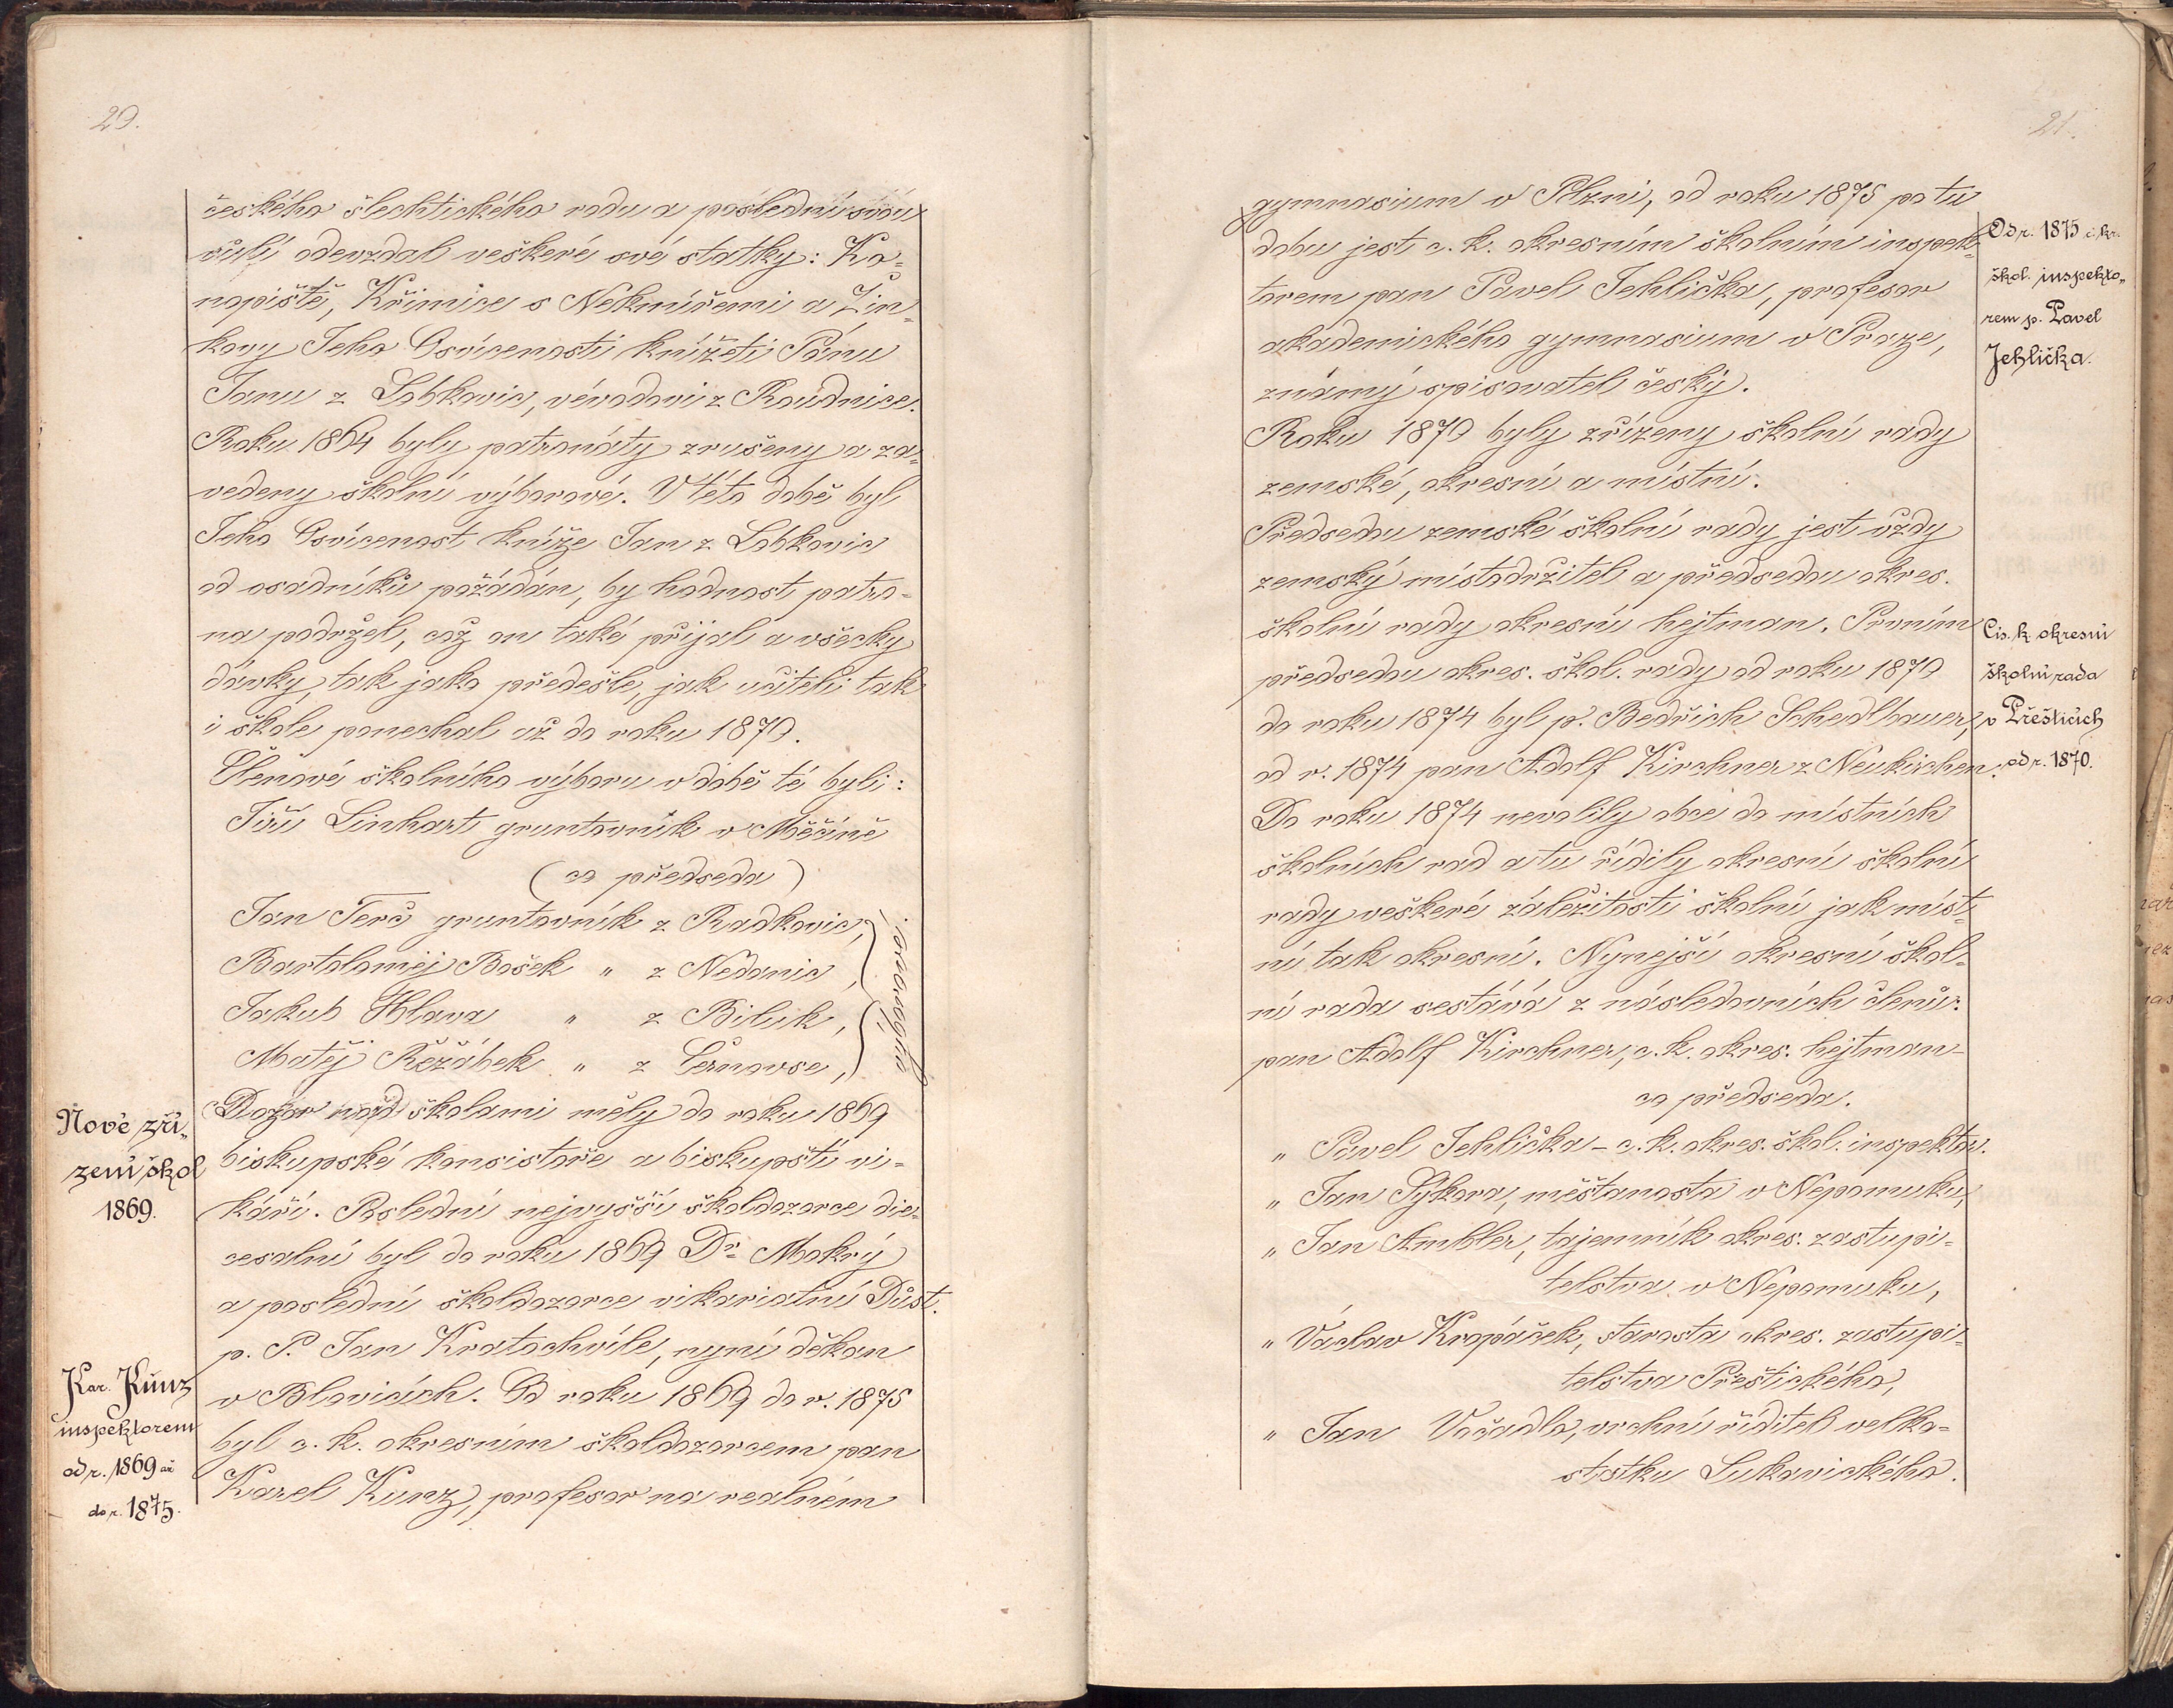 20.
českého šlechtického rodu a poslední svou
vůlí odevzdal veškeré své statky: Ko-
nopiště, Křimice s Nekmířemi a Žin-
kovy Jeho Osvícenosti knížeti Pánu
Janu z Lobkovic, vévodovi z Roudnice.
Roku 1864 byly patronáty zrušeny a za-
vedeny školní výborové. V této době byl
Jeho Osvícenost kníže Jan z Lobkovic
od osadníků požádán, by hodnost patro-
na podržel, což on také přijal a všecky
dávky, tak jako předešle, jak učiteli tak
i škole ponechal až do roku 1870.
Členové školního výboru v době té byli:
Jiří Linhart gruntovník v Měčíně
(co předseda)
Jan Terč gruntovník z Radkovic,
Bartoloměj Bošek " z Nedanic,
Jakub Hlava " z Bíluk,
Matěj Řežábek " z Černovse,
údové.
Nové zří-
zení škol
1869.
Dozor nad školami měly do roku 1869
biskupské konsistoře a biskupští vi-
káři. Poslední nejvyšší školdozorce die-
cesalní byl do roku 1869 Dr. Mokrý
a poslední školdozorce vikariatní Důst.
p. P. Jan Kratochvíle, nyní děkan
v Blovicích. Od roku 1869 do r. 1875
byl c. k. okresním školdozorcem pan
Karel Kunz, profesor na realném
Kar. Kunz
inspektorem
od r. 1869 až
do r. 1875.
21.
gymnasium v Plzni, od roku 1875 po tu
dobu jest c. k. okresním školním inspek-
torem pan Pavel Jehlička, profesor
akademického gymnasium v Praze,
známý spisovatel český.
Od r. 1875 c. kr.
škol. inspekto-
rem p. Pavel
Jehlička.
Roku 1870 byly zřízeny školní rady
zemské, okresní a místní.
Předsedou zemské školní rady jest vždy
zemský místodržitel a předsedou okres.
školní rady okresní hejtman. Prvním
předsedou okres. škol. rady od roku 1870
do roku 1874 byl p. Bedřich Schedlbauer,
od r. 1874 pan Adolf Kirchner z Neukirchen.
Cis. k. okresní
školní rada
v Přešticích
od r. 1870.
Do roku 1874 nevolily obce do místních
školních rad a tu řídily okresní školní
rady veškeré záležitosti školní jak míst-
ní tak okresní. Nynejší okresní škol-
ní rada sestává z následovních členů:
pan Adolf Kirchner, c. k. okres. hejtman -
co předseda.
" Pavel Jehlička - c. k. okres. škol. inspektor.
" Jan Sýkora, měšťanosta v Nepomuku,
" Jan Ambler, tajemník okres. zastupi-
telstva v Nepomuku,
" Václav Kropáček, starosta okres. zastupi-
telstva Přeštického,
" Jan Vočadlo, vrchní řiditel velko-
statku Lukavického.